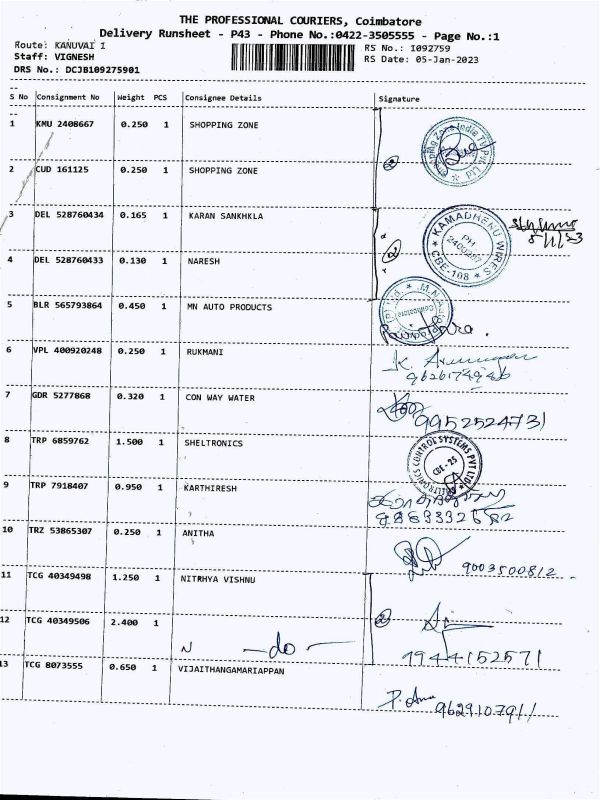 THE PROFESSIONAL COURIERS, Coimbatore
Delivery Runsheet - P43 - Phone No.:0422-3505555 - Page No.:1
Route: KANUVAI 1 RS No.: 1092759
Staff: VIGNESH RS Date: 05-Jan-2023
DRS No.: DCJB109275901
S No Consignment No Weight PCS Consignee Details Signature
1 KMU 2408667 0.250 1 SHOPPING ZONE
2 CUD 161125 0.250 1 SHOPPING ZONE
2
3 DEL 528760434 0.165 1 KARAN SANKHKLA
KAMADHENU WIRES
PH.
CBE-108
5/1/23
4 DEL 528760433 0.130 1 NARESH
2
5 BLR 565793864 0.450 1 MN AUTO PRODUCTS
Coimbatore
6 VPL 400920248 0.250 1 RUKMANI
K.
9626174946
7 GDR 5277868 0.320 1 CON WAY WATER
9952524731
8 TRP 6859762 1.500 1 SHELTRONICS
CONTROL SYSTEMS PVT LTD
CBE-25
9 TRP 7918407 0.950 1 KARTHIRESH
10 TRZ 53865307 0.250 1 ANITHA
9003500812
11 TCG 40349498 1.250 1 NITRHYA VISHNU
12 TCG 40349506 2.400 1
2
- do -
9944152571
13 TCG 8073555 0.650 1 VIJAITHANGAMARIAPPAN
9629107911